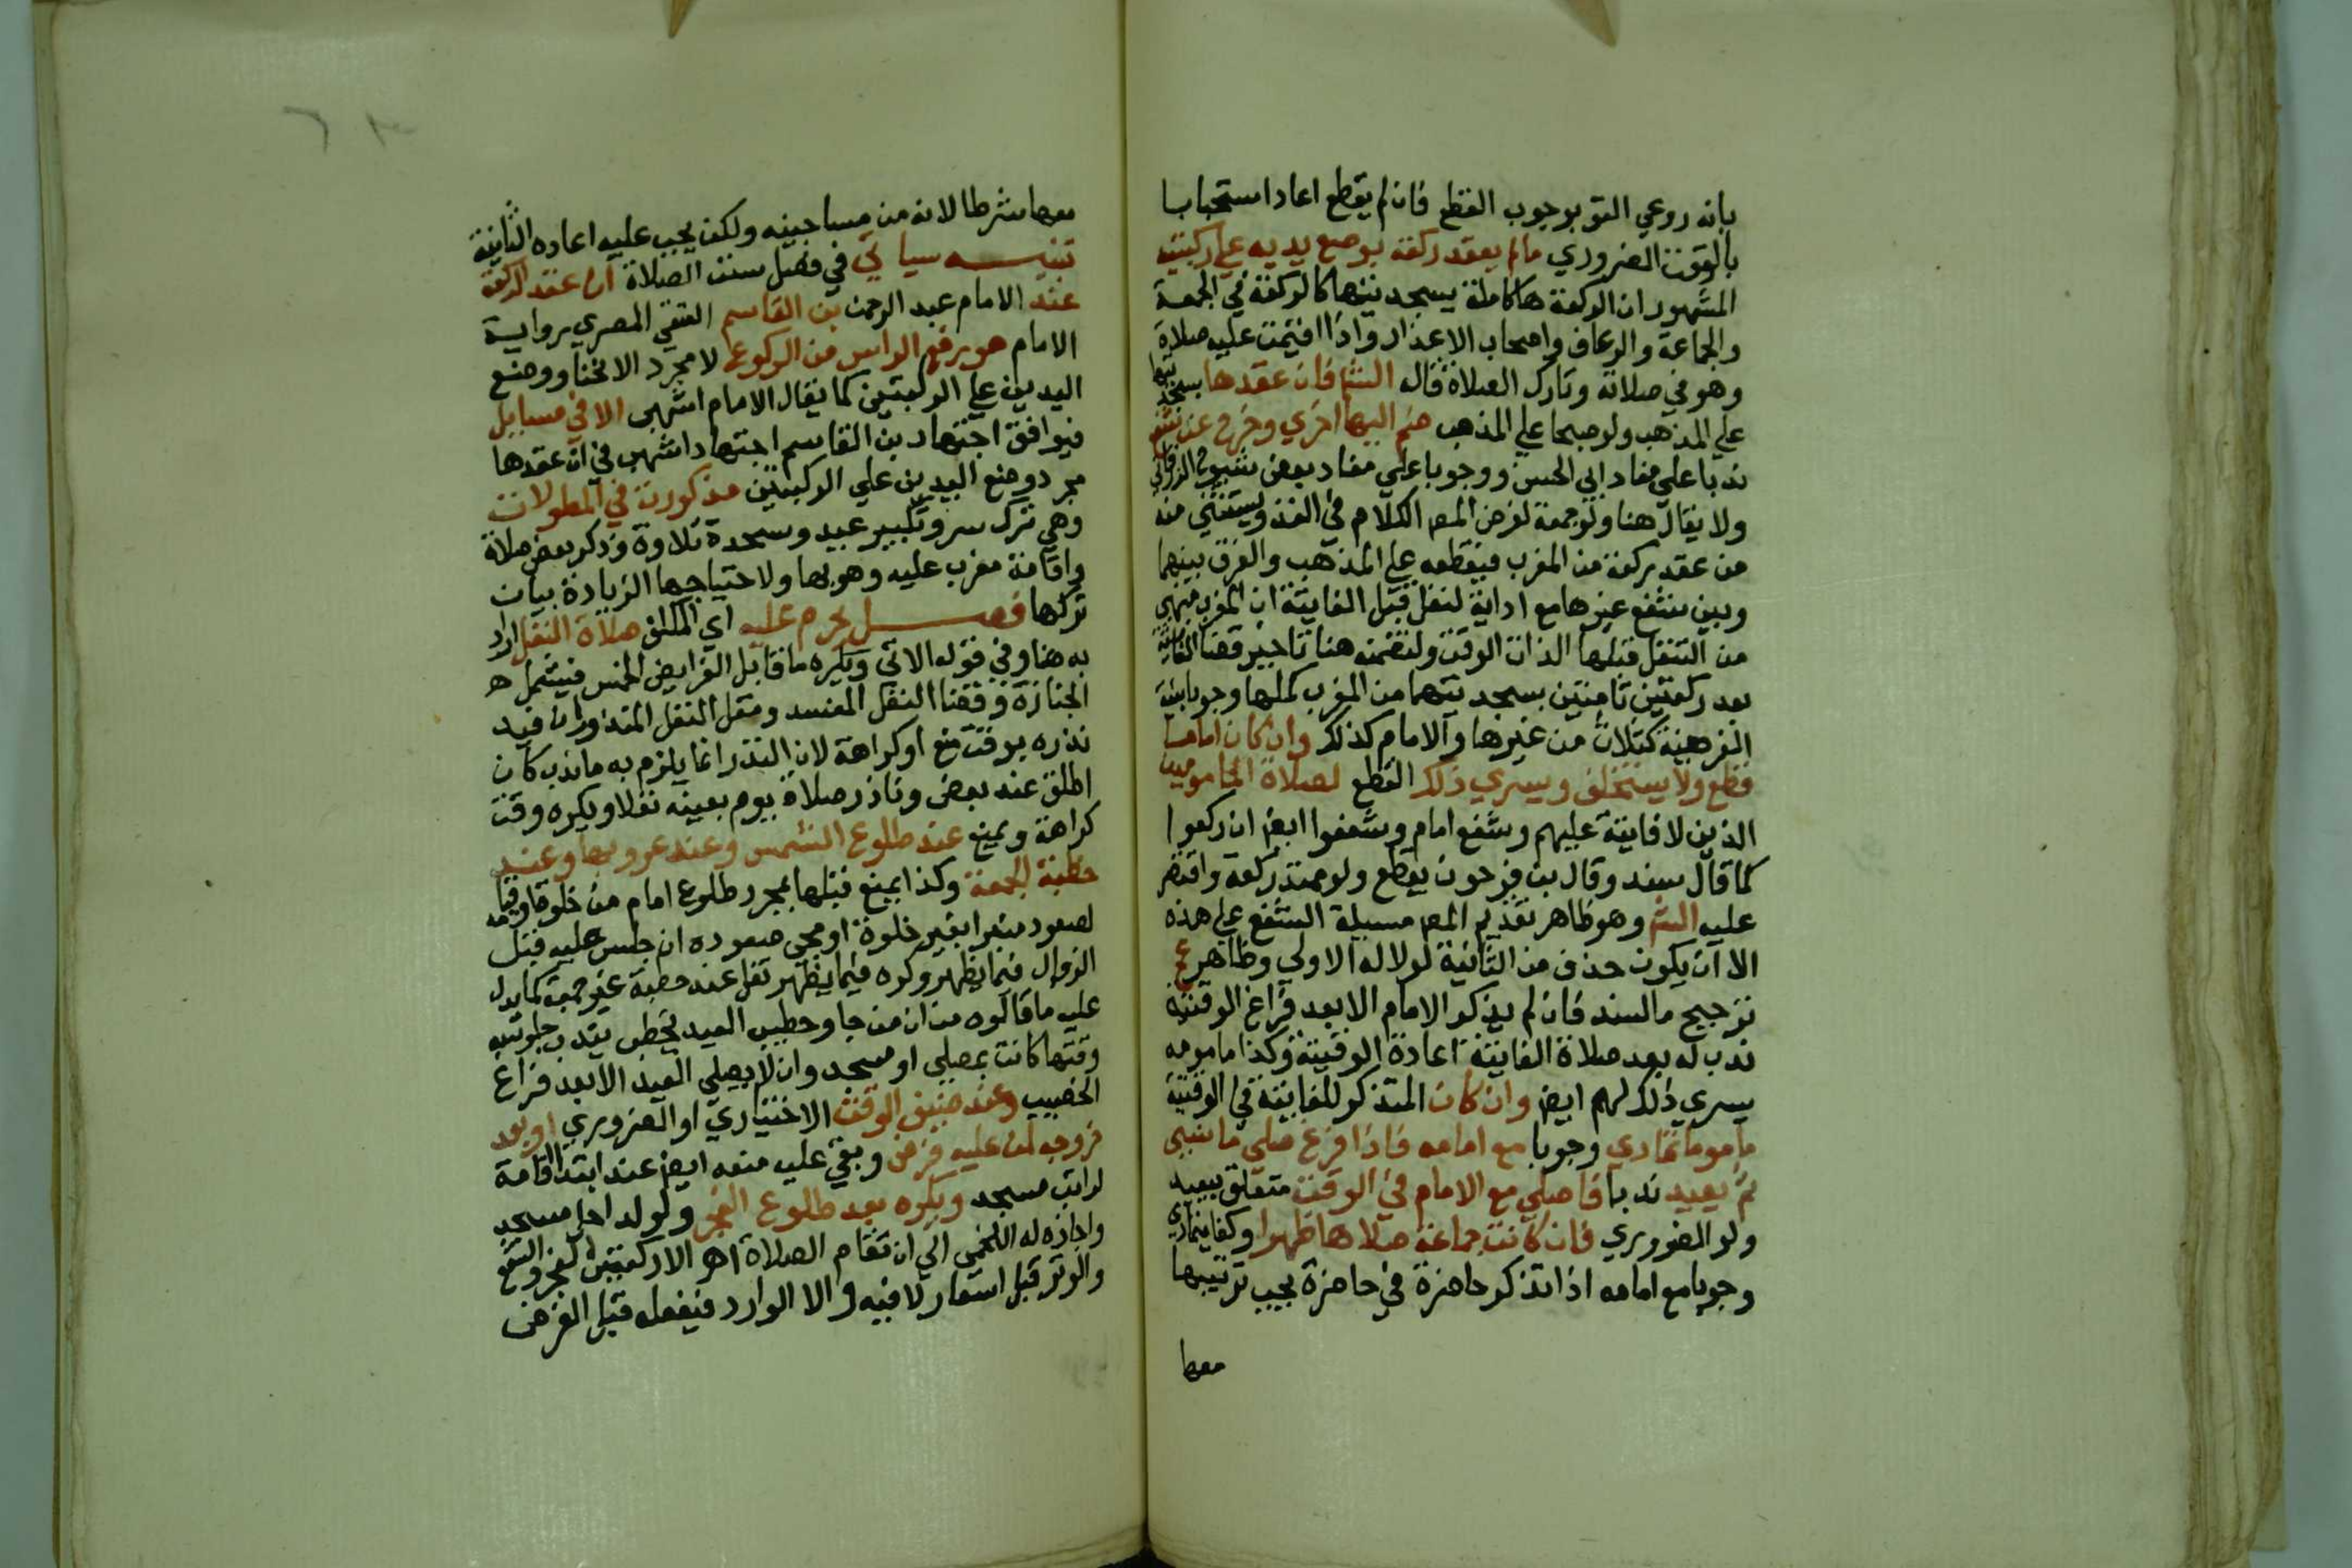 بانه روعي القو بوجوب القطع فان لم يقطع اعاد استحبابا
بالوقت الضروري مالم يعقد ركعة بوضع يديه علي ركبتيه
المشهور ان الركعة ها كاملة يسجد بينها كالركعة في الجمعة
والجماعة والرعاف واصحاب الاعذار واذا اقيمت عليه صلاة
وهو في صلاته وتارك الصلاة قال الشم فان عقدها بسجدتيها
علي المذهب ولو صبحا علي المذهب ضم اليها اخري وخرج عن شفع
ندبا علي مفاد ابي الحسن ووجوبا علي مفاد بعض شيوخ الزرقاني
ولا يقال هنا ولو جمعة لفرض المص الكلام في الفذ ويستثني منه
من عقد ركعة من المغرب فيقطعه علي المذهب والفرق بينهما
وبين شفع غيرها مع ادايه لنفل قبل الفايتة ان المغرب منهي
من التنفل قبلها الذات الوقت ولتضمنه هنا تاخير قضا الفايتة
بعد ركعتين تامتين بسجدتيهما من المغرب كملها وجوبا بنية
الفرضية كثلاث من غيرها والامام كذلك وان كان اماما
قطع ولا يستخلف ويسري ذلك القطع لصلاة المامومين
الذين لا فايتة عليهم وشفع امام وشفعوا ايض ان ركعوا
كما قال سند وقال بن فرحون يقطع ولو عقد ركعة واقتصر
عليه الشم وهو ظاهر تقديم المص مسيلة الشفع علي هذه
الا ان يكون حذف من الثانية لولاله الاولي وظاهر عج
ترجيح مالسند فان لم يذكر الامام الا بعد فراغ الوقتية
ندب له بعد صلاة الفايتة اعادة الوقتية وكذا مامومه
يسري ذلك لهم ايض وان كان المتذكر للفايتة في الوقتية
ماموما تمادي وجوبا مع امامه فاذا فرغ صلي ما نسي
ثم يعيد ندبا ما صلي مع الامام في الوقت متعلق بيعيد
ولو الضروري فان كانت جماعة صلاها ظهرا وكذا يتمادي
وجوبا مع امامه اذا تذكر حاضرة في حاضرة يجب ترتيبها
معها
معها شرطا لانه من مساجينه ولكن يجب عليه اعاده الثانية
تنبيه سياتي في فصل سنن الصلاة ان عقد الركعة
عند الامام عبد الرحمن بن القاسم العتقي المصري برواية
الامام هو برفع الراس من الركوع لا مجرد الانحنا ووضع
اليدين علي الركبتين كما يقال الامام اشهب الا في مسايل
فيوافق اجتهاد بن القاسم اجتهاد اشهب في ان عقدها
مجرد وضع اليدين علي الركبتين مذكورة في المطولات
وهي ترك سر وتكبير عيد وسجدة تلاوة وذكر بعض صلاة
واقامة مغرب عليه وهو بها ولاحتياجها الزيادة بيان
تركها فصل يحرم عليه اي المكلف صلاة النفل اراد
به هنا وفي قوله الاتي ويكره ما قابل الفرايض الخمس فيشمل
الجنازة وقضا النفل المفسد ومثل النفل المنذور ان قيد
نذره بوقت منع او كراهة لان النذر انما يلزم به ما ندب كان
اطلق عند بعض وناذر صلاة بيوم بعينه نفلا ويكره وقت
كراهة ويمنع عند طلوع الشمس وعند غروبها وعند
خطبة الجمعة وكذا يمنع قبلها بمجرد طلوع امام من خلوة اوقيامه
لصعود منبر ابغير خلوة او مجي صعوده ان جلس عليه قبل
الزوال فيما يظهر وكره فيما يظهر نفل عند خطبة غير جمعة كما يدل
عليه ما قالوه من ان من جا وخطيب العيد يخطب يندب جلوسه
وقتها كانت بمصلي او مسجد وان لا يصلي العيد الا بعد فراغ
الخطيب وعند ضيق الوقت الاختياري او الضروري او بعد
خروجه لمن عليه فرض وبقي عليه منعه ايض عند ابتدا اقامة
لراتب مسجد ويكره بعد طلوع الفجر ولو لداخل مسجد
واجازه له اللخمي الي ان تقام الصلاة اهـ الا ركعتين الفجر والشفع
والوتر قبل اسفار لا فيه و الا الوارد فيفعله قبل الفرض